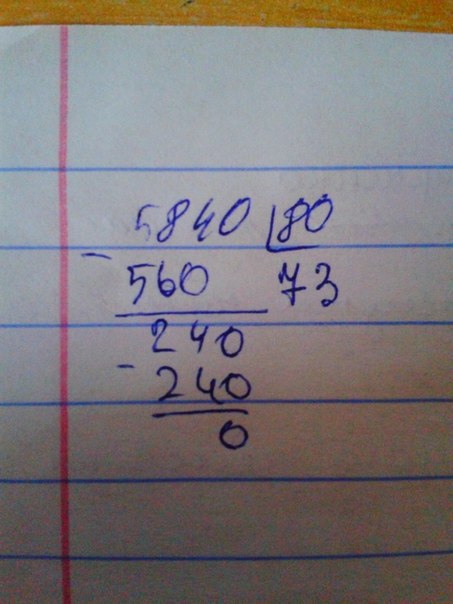 5840 80
- 560 73
240
- 240
0